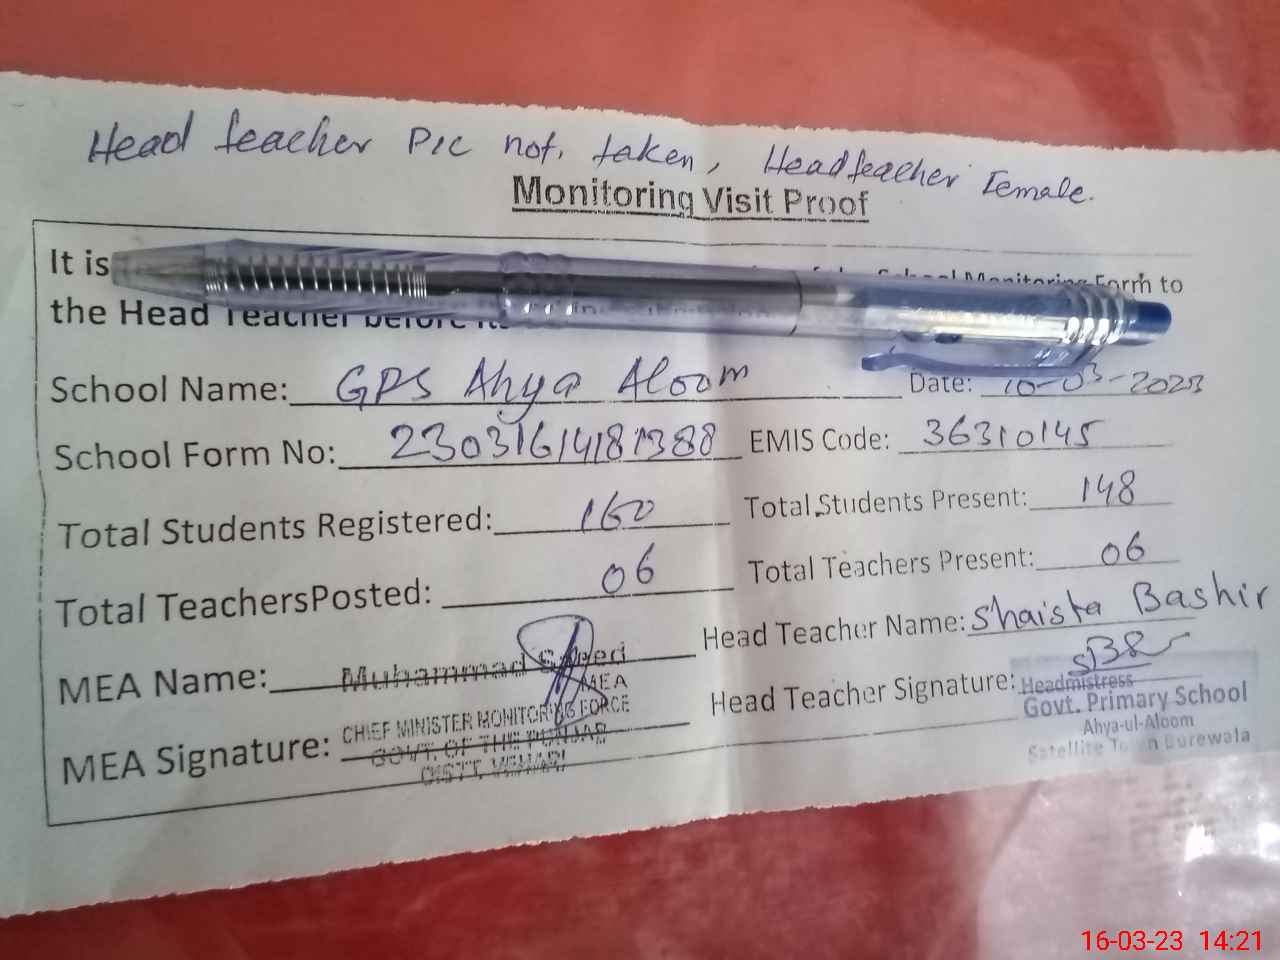 Head teacher Pic not, taken, Headteacher Female.
Monitoring Visit Proof
It is School Monitoring Form to
the Head Teacher before its
School Name: GPS Ahya Aloom Date: 16-03-2023
School Form No: 23031614181388 EMIS Code: 36310145
Total Students Registered: 160 Total Students Present: 148
Total TeachersPosted: 06 Total Teachers Present: 06
MEA Name: Muhammad Saeed Head Teacher Name: Shaista Bashir
MEA
MEA Signature: CHIEF MINISTER MONITORING FORCE Head Teacher Signature:
GOVT. OF THE PUNJAB
DISTT. VEHARI
Headmistress
Govt. Primary School
Ahya-ul-Aloom
Satellite Town Burewala
16-03-23 14:21